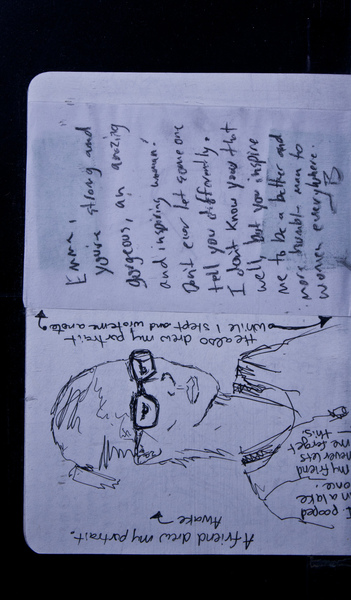 Emma,
you're strong and
gorgeous, an amazing
and inspiring woman!
Don't ever let someone
tell you differently.
I don't know you that
well, but you inspire
me to be a better and
more humble man to
women everywhere.
He also drew my portrait
while I slept and wrote me a note
A friend drew my portrait.
Awake
I pooped
in a lake
once.
my friend
never lets
me forget
this.